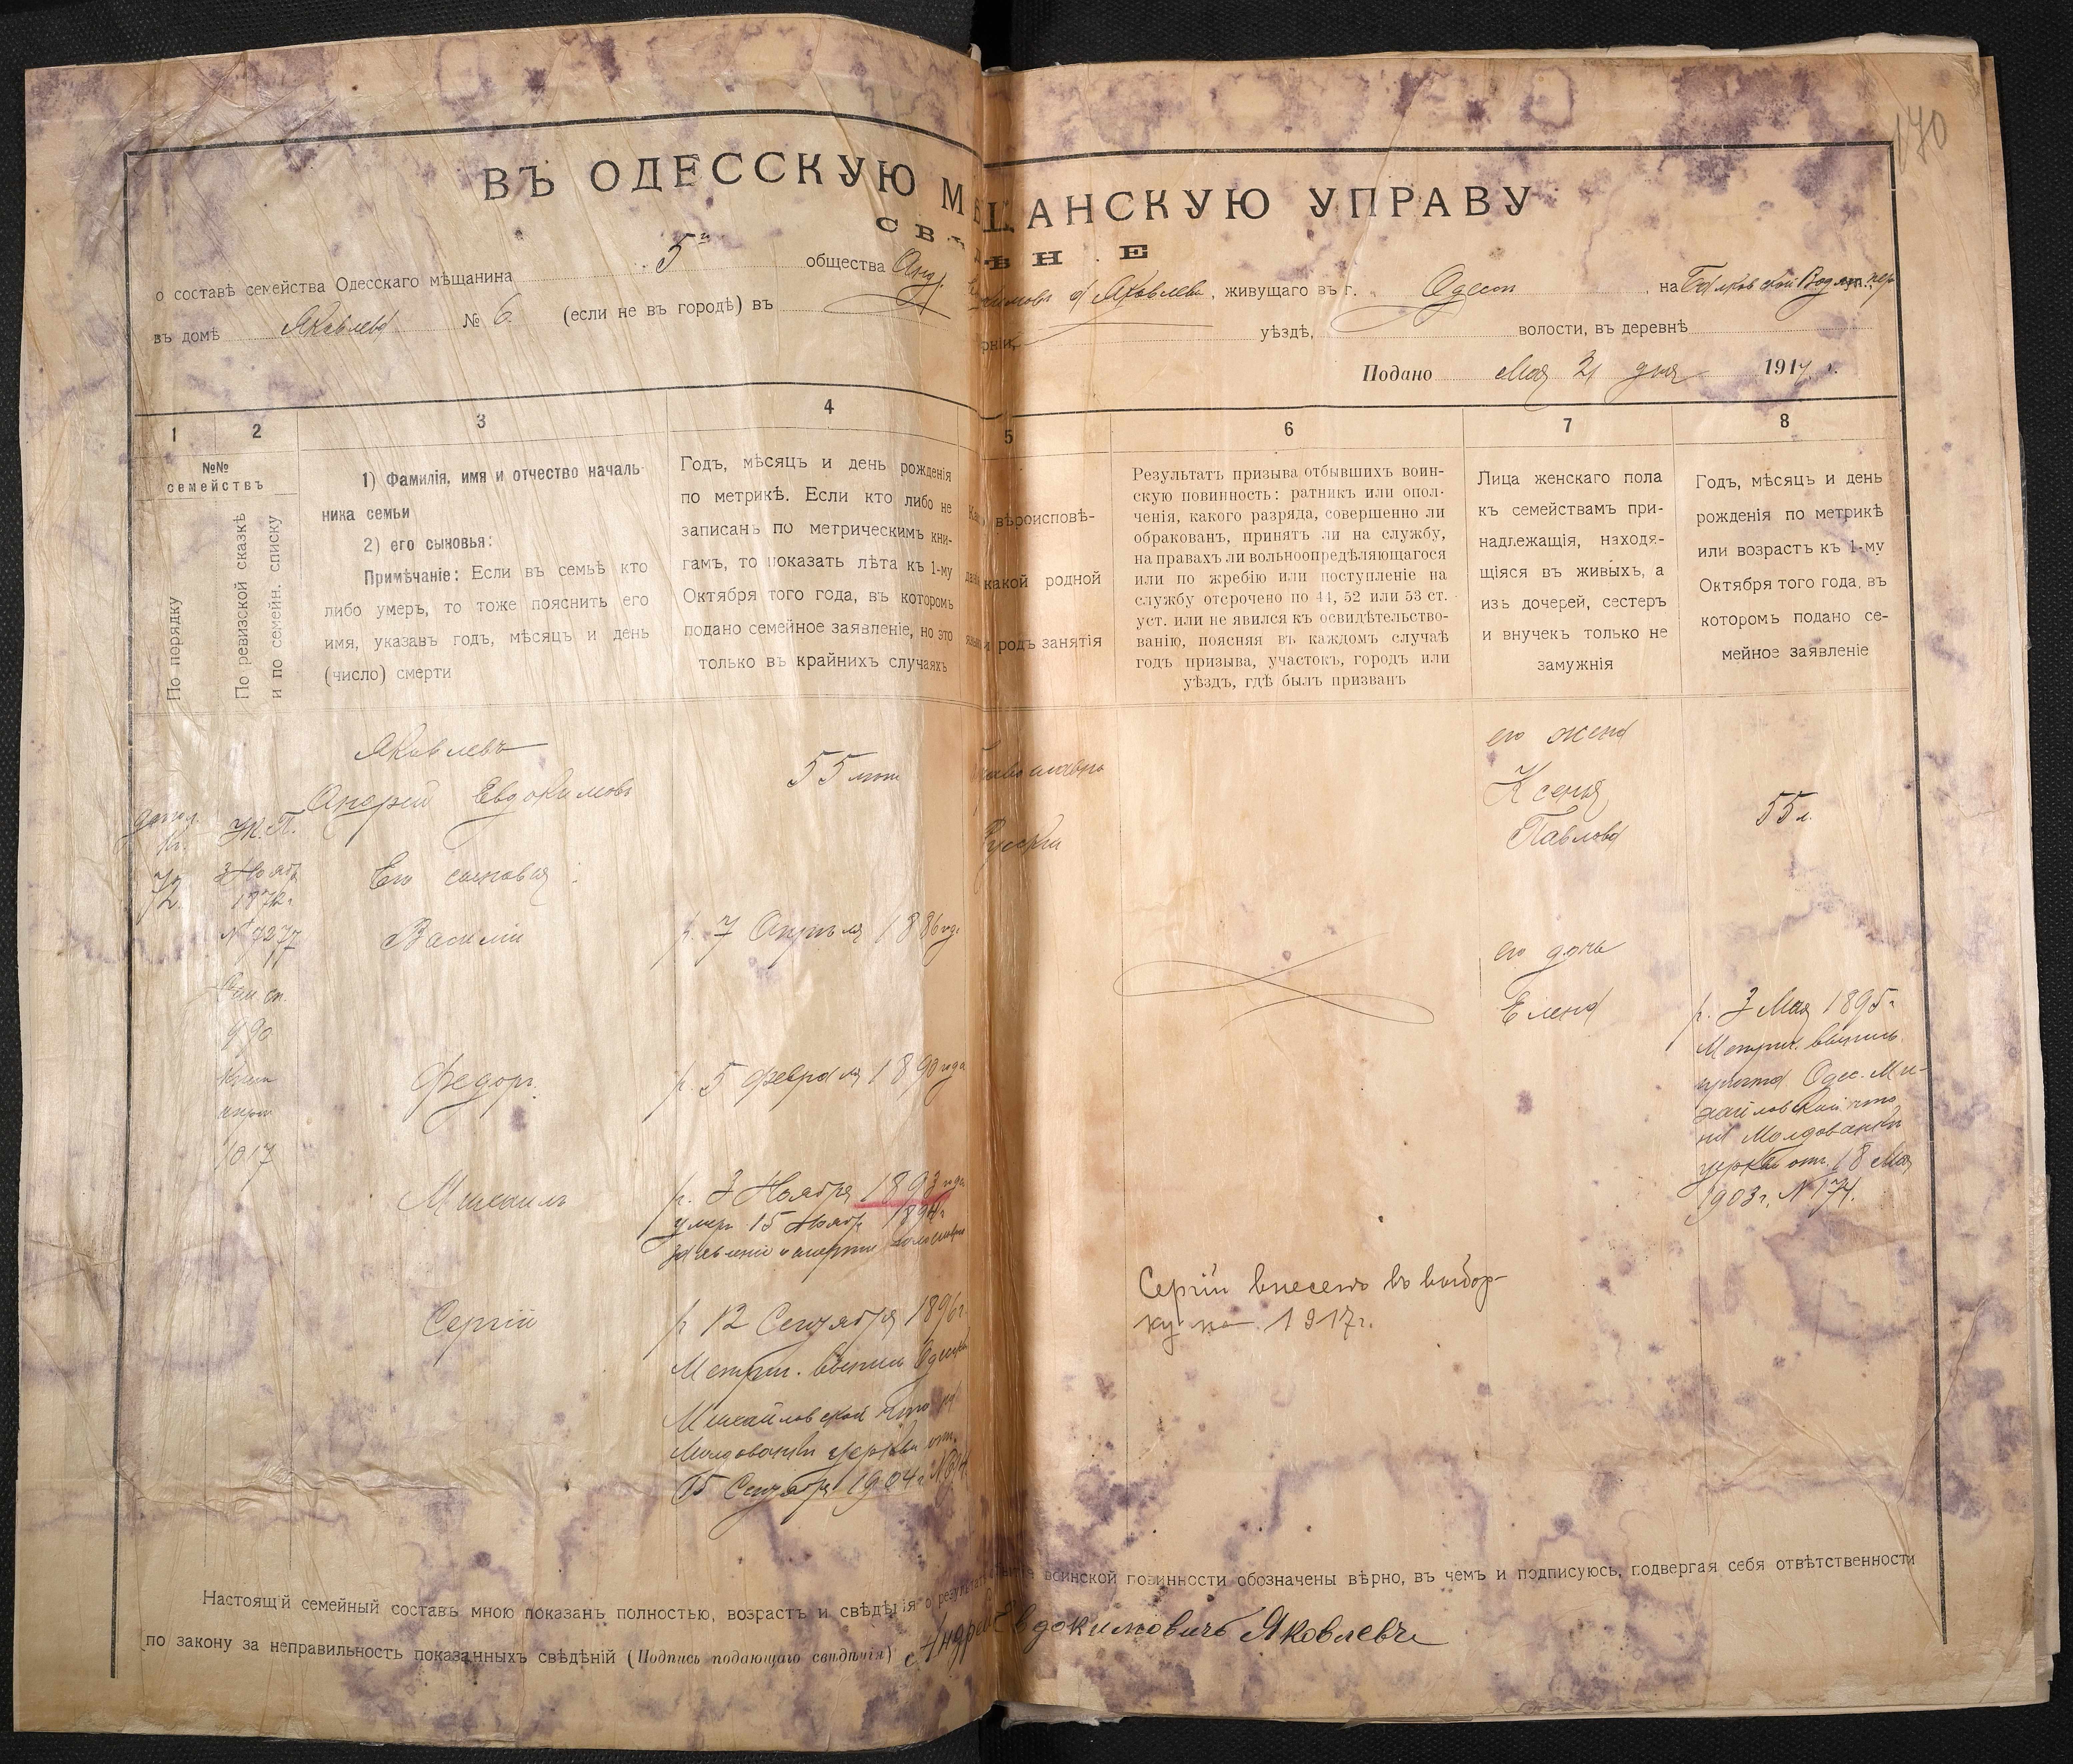 170
ВЪ ОДЕССКУЮ МѢЩАНСКУЮ УПРАВУ
о составѣ семейства Одесскаго мѣщанина 5го общества Анд. Евдокимовъ Яковлева, живущаго въ г. Одессѣ, на
въ домѣ Яковлева № 6. (если не въ городѣ) въ уѣздѣ, волости, въ деревнѣ
Подано Мая 21 дня 1914 г.
1 2 3 4 5 6 7 8
№№
семействъ
По порядку
По ревизской сказкѣ
и по семейн. списку
1) Фамилія, имя и отчество началь-
ника семьи
2) его сыновья:
Примѣчаніе: Если въ семьѣ кто
либо умеръ, то тоже пояснить его
имя, указавъ годъ, мѣсяцъ и день
(число) смерти
Годъ, мѣсяцъ и день рожденія
по метрикѣ. Если кто либо не
записанъ по метрическимъ кни-
гамъ, то показать лѣта къ 1-му
Октября того года, въ которомъ
подано семейное заявленіе, но это
только въ крайнихъ случаяхъ
вѣроисповѣ-
какой родной
и родъ занятія
Результатъ призыва отбывшихъ воин-
скую повинность: ратникъ или опол-
ченія, какого разряда, совершенно ли
обракованъ, принятъ ли на службу,
на правахъ ли вольноопредѣляющагося
или по жребію или поступленіе на
службу отсрочено по 44, 52 или 53 ст.
уст. или не явился къ освидѣтельство-
ванію, поясняя въ каждомъ случаѣ
годъ призыва, участокъ, городъ или
уѣздъ, гдѣ былъ призванъ
Лица женскаго пола
къ семействамъ при-
надлежащія, находя-
щіяся въ живыхъ, а
изъ дочерей, сестеръ
и внучекъ только не
замужнія
Годъ, мѣсяцъ и день
рожденія по метрикѣ
или возрастъ къ 1-му
Октября того года, въ
которомъ подано се-
мейное заявленіе
Яковлевъ
Андрей Евдокимовъ
55 лѣт
Православн
Русскій
его жена
Ксенія
Павлова
55 л.
3 Нояб.
1872 г
№ 7277
990
1017
Его сыновья:
Василій
р. 7 Апрѣля 1886 год
его дочь
Елена
р. 3 Мая 1895 г
Метрич. выпись
Одес. Ми-
хайловской что
на Молдованкѣ
церкви отъ 18 Мая
1903 г. № 174.
Федоръ.
р. 5 Февраля 1890 года
Михаилъ
р. 3 Ноября 1893 года
умеръ 15 Нояб. 1894 г
Сергій
р 12 Сентября 1896 г.
Метрич. выпись Одесск
Михайловской что на
Молдованкѣ церкви отъ
15 Сентября 1904 г.
Сергій внесенъ въ выбор-
ку на 1917 г.
Настоящій семейный составъ мною показанъ полностью, возрастъ и свѣдѣнія о воинской повинности обозначены вѣрно, въ чемъ и подписуюсь, подвергая себя отвѣтственности
по закону за неправильность показанныхъ свѣдѣній (Подпись подающаго свѣдѣнія) Андрей Евдокимовичъ Яковлевъ